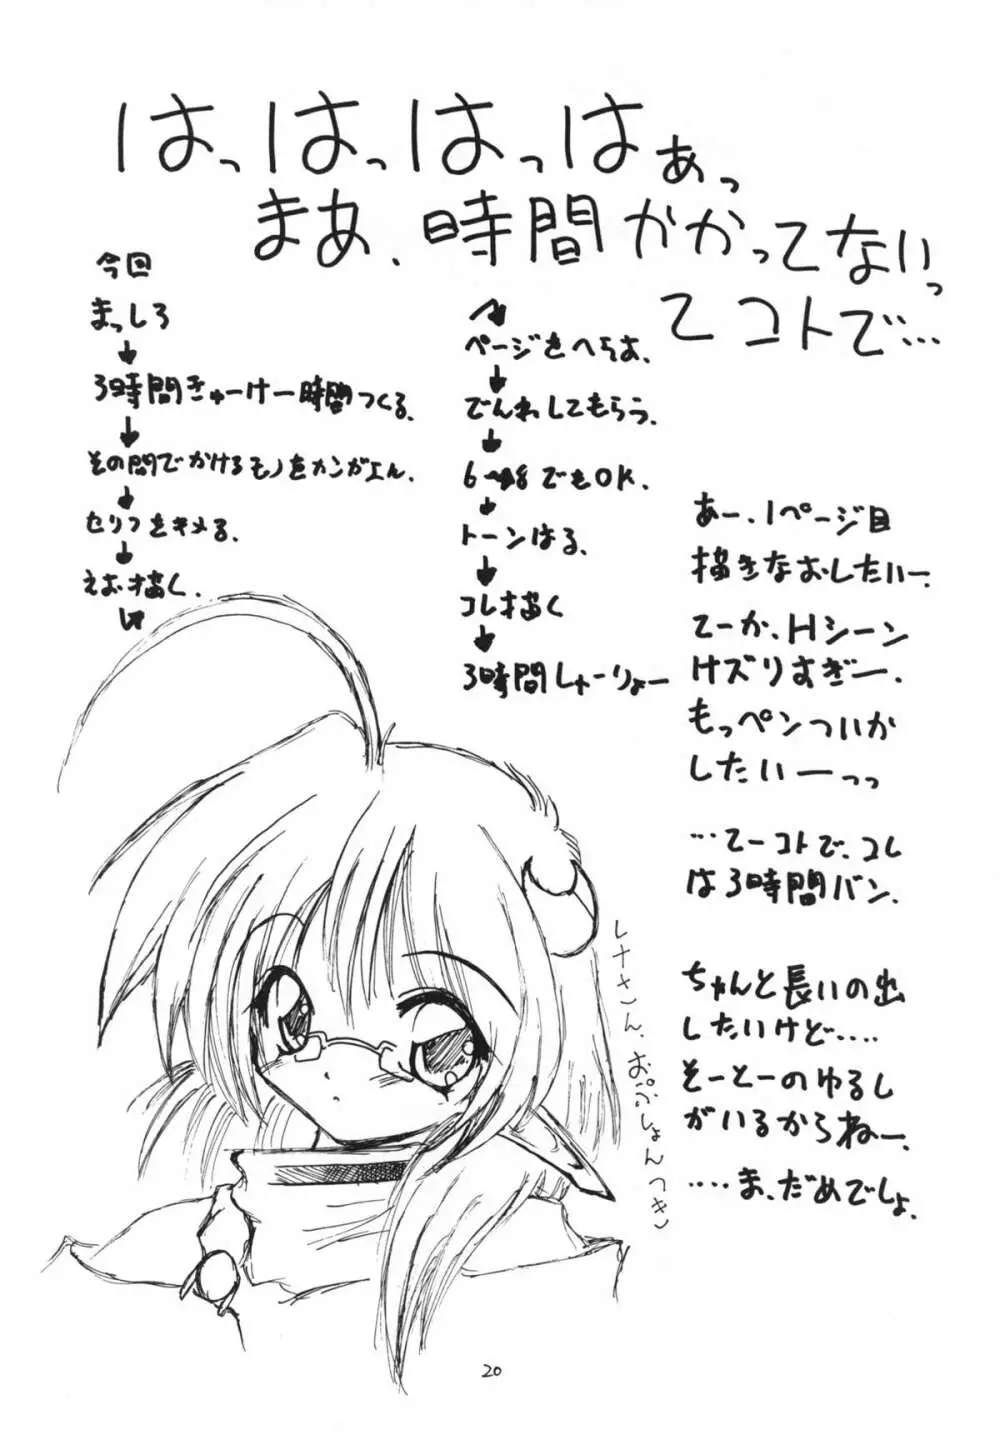 はっはっはっはぁっ
まあ、時間かかってないっ
てコトで…
今回
まっしろ
↓
3時間きゅーけー時間つくる。
↓
その間でかけるモノをカンガエル。
↓
セリフをキメる。
↓
えお描く。
ページをへらす。
↓
でんわしてもらう。
↓
6→8でもOK.
↓
トーンはる。
↓
コレ描く
↓
3時間しゅーりょー
あー、1ページ目
描きなおしたいー。
てーか、Hシーン
けズりすぎー。
もっペンついか
したいーーっっ
…てーコトで、コレ
は3時間バン。
ちゃんと長いの出
したいけど‥‥
そーとーのゆるし
がいるからねー。
‥‥ま、だめでしょ。
レナさん、おぷしょんつき
20